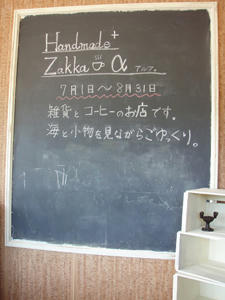 Handmade+
Zakka α アルファ。
7月1日〜8月31日
雑貨とコーヒーのお店です。
海と小物を見ながらごゆっくり。